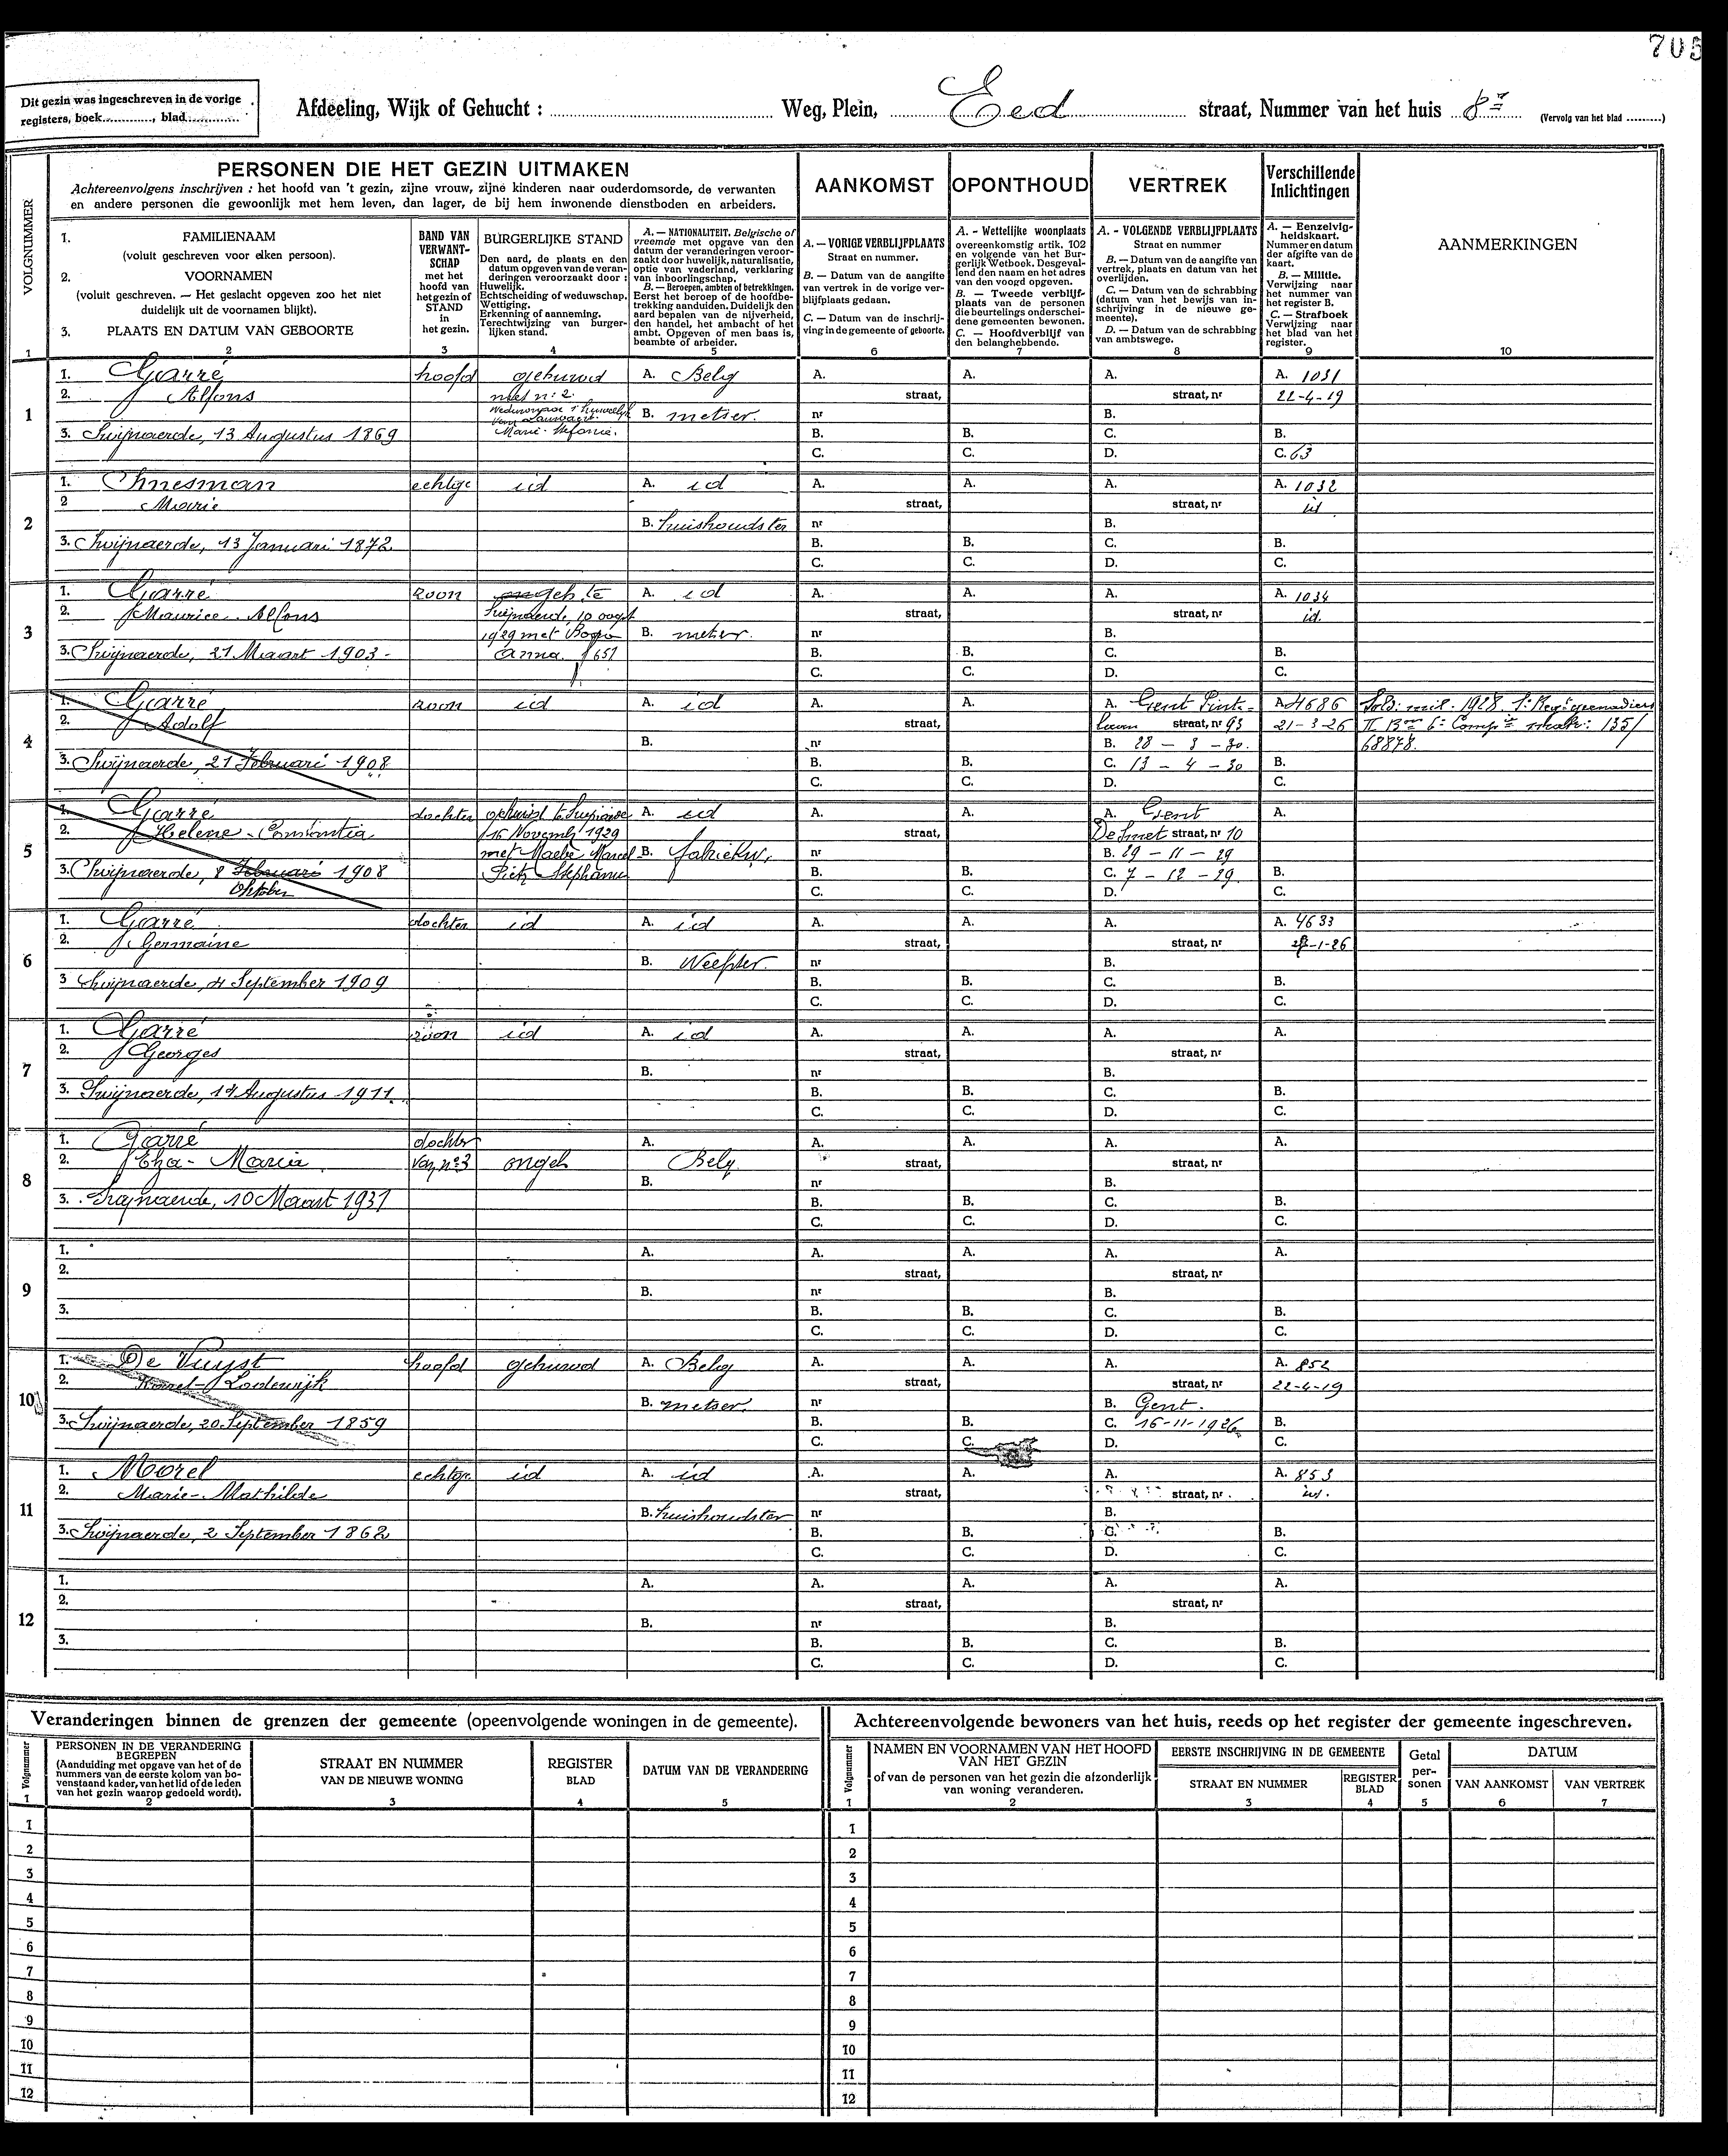 705
Dit gezin was ingeschreven in de vorige
registers, boek..........., blad............
Afdeeling, Wijk of Gehucht : ........ Weg, Plein, Eed straat, Nummer van het huis 8
(Vervolg van het blad .........)
VOLGNUMMER
PERSONEN DIE HET GEZIN UITMAKEN
Achtereenvolgens inschrijven : het hoofd van 't gezin, zijne vrouw, zijne kinderen naar ouderdomsorde, de verwanten
en andere personen die gewoonlijk met hem leven, dan lager, de bij hem inwonende dienstboden en arbeiders.
AANKOMST
OPONTHOUD
VERTREK
Verschillende
Inlichtingen
1. FAMILIENAAM
(voluit geschreven voor elken persoon).
2. VOORNAMEN
(voluit geschreven. — Het geslacht opgeven zoo het niet
duidelijk uit de voornamen blijkt).
3. PLAATS EN DATUM VAN GEBOORTE
BAND VAN
VERWANT-
SCHAP
met het
hoofd van
het gezin of
STAND
in
het gezin.
BURGERLIJKE STAND
Den aard, de plaats en den
datum opgeven van de veran-
deringen veroorzaakt door :
Huwelijk.
Echtscheiding of weduwschap.
Wettiging.
Erkenning of aanneming.
Terechtwijzing van burger-
lijken stand.
A. — NATIONALITEIT. Belgische of
vreemde met opgave van den
datum der veranderingen veroor-
zaakt door huwelijk, naturalisatie,
optie van vaderland, verklaring
van inboorlingschap.
B. — Beroepen, ambten of betrekkingen.
Eerst het beroep of de hoofdbe-
trekking aanduiden. Duidelijk den
aard bepalen van de nijverheid,
den handel, het ambacht of het
ambt. Opgeven of men baas is,
beambte of arbeider.
A. — VORIGE VERBLIJFPLAATS
Straat en nummer.
B. — Datum van de aangifte
van vertrek in de vorige ver-
blijfplaats gedaan.
C. — Datum van de inschrij-
ving in de gemeente of geboorte.
A. - Wettelijke woonplaats
overeenkomstig artik. 102
en volgende van het Bur-
gerlijk Wetboek. Desgeval-
lend den naam en het adres
van den voogd opgeven.
B. — Tweede verblijf-
plaats van de personen
die beurtelings onderschei-
dene gemeenten bewonen.
C. — Hoofdverblijf van
den belanghebbende.
A. - VOLGENDE VERBLIJFPLAATS
Straat en nummer
B. — Datum van de aangifte van
vertrek, plaats en datum van het
overlijden.
C. — Datum van de schrabbing
(datum van het bewijs van in-
schrijving in de nieuwe ge-
meente).
D. — Datum van de schrabbing
van ambtswege.
A. — Eenzelvig-
heidskaart.
Nummer en datum
der afgifte van de
kaart.
B. — Militie.
Verwijzing naar
het nummer van
het register B.
C. — Strafboek
Verwijzing naar
het blad van het
register.
AANMERKINGEN
1 2 3 4 5 6 7 8 9 10
1
1. Garré hoofd gehuwd A. Belg A. A. A. A. 1031
2. Alfons met n: 2. straat, straat, nr 22-4-19
Weduwnaar 1° huwelijk
van Lauwaert
Marie-Stefanie. B. metser. nr B.
3. Swijnaerde, 13 Augustus 1869 B. B. C. B.
C. C. D. C. 63
2
1. Chnesman echtge id A. id A. A. A. A. 1032
2 Marie straat, straat, nr id
B. huishoudster nr B.
3. Swijnaerde, 13 Januari 1872. B. B. C. B.
C. C. D. C.
3
1. Garré zoon geh. te A. id A. A. A. A. 1034
2. Maurice-Alfons Swijnaerde, 10 oogst straat, straat, nr id.
1929 met
Anna. f 651 B. metser. nr B.
3. Swijnaerde, 21 Maart 1903 - B. B. C. B.
C. C. D. C.
4
1. Garré zoon id A. id A. A. A. Gent Pint- A. 4686 Sold. mil. 1928. 1e Reg. grenadiers
2. Adolf straat, laan straat, nr 93 21-3-26 II Bon 6e Compie matr: 135/
B. nr B. 28 - 3 - 30. 68878.
3. Swijnaerde, 21 Februari 1908 B. B. C. 13 - 4 - 30 B.
C. C. D. C.
5
1. Garré dochter gehuwd te Swijnaerde A. id A. A. A. Gent A.
2. Helene-Constantia 16 Novemb 1929 straat, De Smet straat, nr 10
met Maebe Marcel B. fabriekw. nr B. 29 - 11 - 29
3. Swijnaerde, 8 Februari 1908 Stephanie B. B. C. 7 - 12 - 29. B.
Oktober C. C. D. C.
6
1. Garré dochter id A. id A. A. A. A. 4633
2. Germaine straat, straat, nr -1-26
B. Weefster. nr B.
3 Swijnaerde, 4 September 1909 B. B. C. B.
C. C. D. C.
7
1. Garré zoon id A. id A. A. A. A.
2. Georges straat, straat, nr
B. nr B.
3. Swijnaerde, 14 Augustus 1911. B. B. C. B.
C. C. D. C.
8
1. Garré dochter A. A. A. A. A.
2. Maria van n: 3 ongeh Belg straat, straat, nr
B. nr B.
3. Swijnaerde, 10 Maart 1931 B. B. C. B.
C. C. D. C.
9
1. A. A. A. A. A.
2. straat, straat, nr
B. nr B.
3. B. B. C. B.
C. C. D. C.
10
1. De Vuyst hoofd gehuwd A. Belg A. A. A. A. 852
2. Karel-Lodewijk straat, straat, nr 22-4-19
B. metser. nr B. Gent.
3. Swijnaerde, 20 September 1859 B. B. C. 16-11-1926 B.
C. C. D. C.
11
1. Morel echtge. id A. id A. A. A. A. 853
2. Marie-Mathilde straat, straat, nr id.
B. huishoudster nr B.
3. Swijnaerde, 2 September 1862 B. B. C. B.
C. C. D. C.
12
1. A. A. A. A. A.
2. straat, straat, nr
B. nr B.
3. B. B. C. B.
C. C. D. C.
Veranderingen binnen de grenzen der gemeente (opeenvolgende woningen in de gemeente).
Volgnummer
PERSONEN IN DE VERANDERING
BEGREPEN
(Aanduiding met opgave van het of de
nummers van de eerste kolom van bo-
venstaand kader, van het lid of de leden
van het gezin waarop gedoeld wordt).
STRAAT EN NUMMER
VAN DE NIEUWE WONING
REGISTER
BLAD
DATUM VAN DE VERANDERING
1 2 3 4 5
1
2
3
4
5
6
7
8
9
10
11
12
Achtereenvolgende bewoners van het huis, reeds op het register der gemeente ingeschreven.
Volgnummer
NAMEN EN VOORNAMEN VAN HET HOOFD
VAN HET GEZIN
of van de personen van het gezin die afzonderlijk
van woning veranderen.
EERSTE INSCHRIJVING IN DE GEMEENTE
STRAAT EN NUMMER
REGISTER
BLAD
Getal
per-
sonen
DATUM
VAN AANKOMST
VAN VERTREK
1 2 3 4 5 6 7
1
2
3
4
5
6
7
8
9
10
11
12